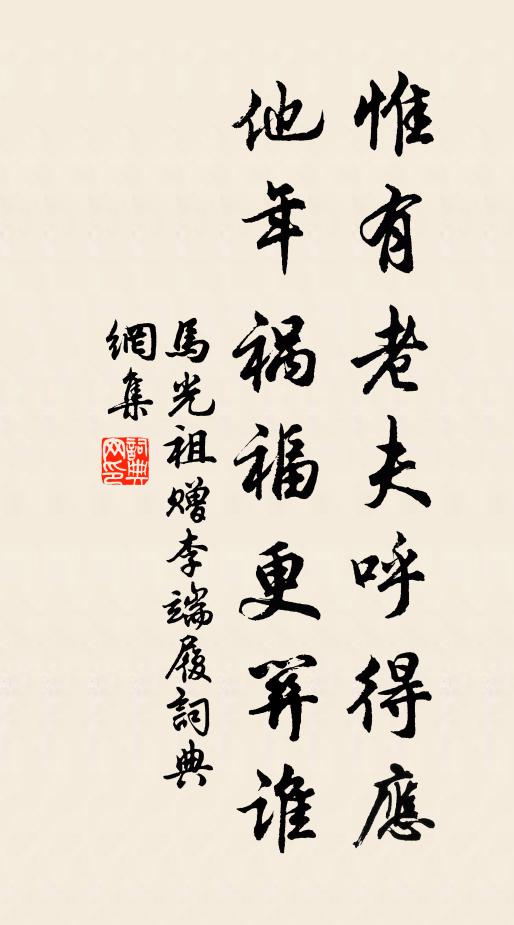 惟有老夫呼得應
他年禍福更誰
馬光祖贈李端履詞典
網集
詞典网印